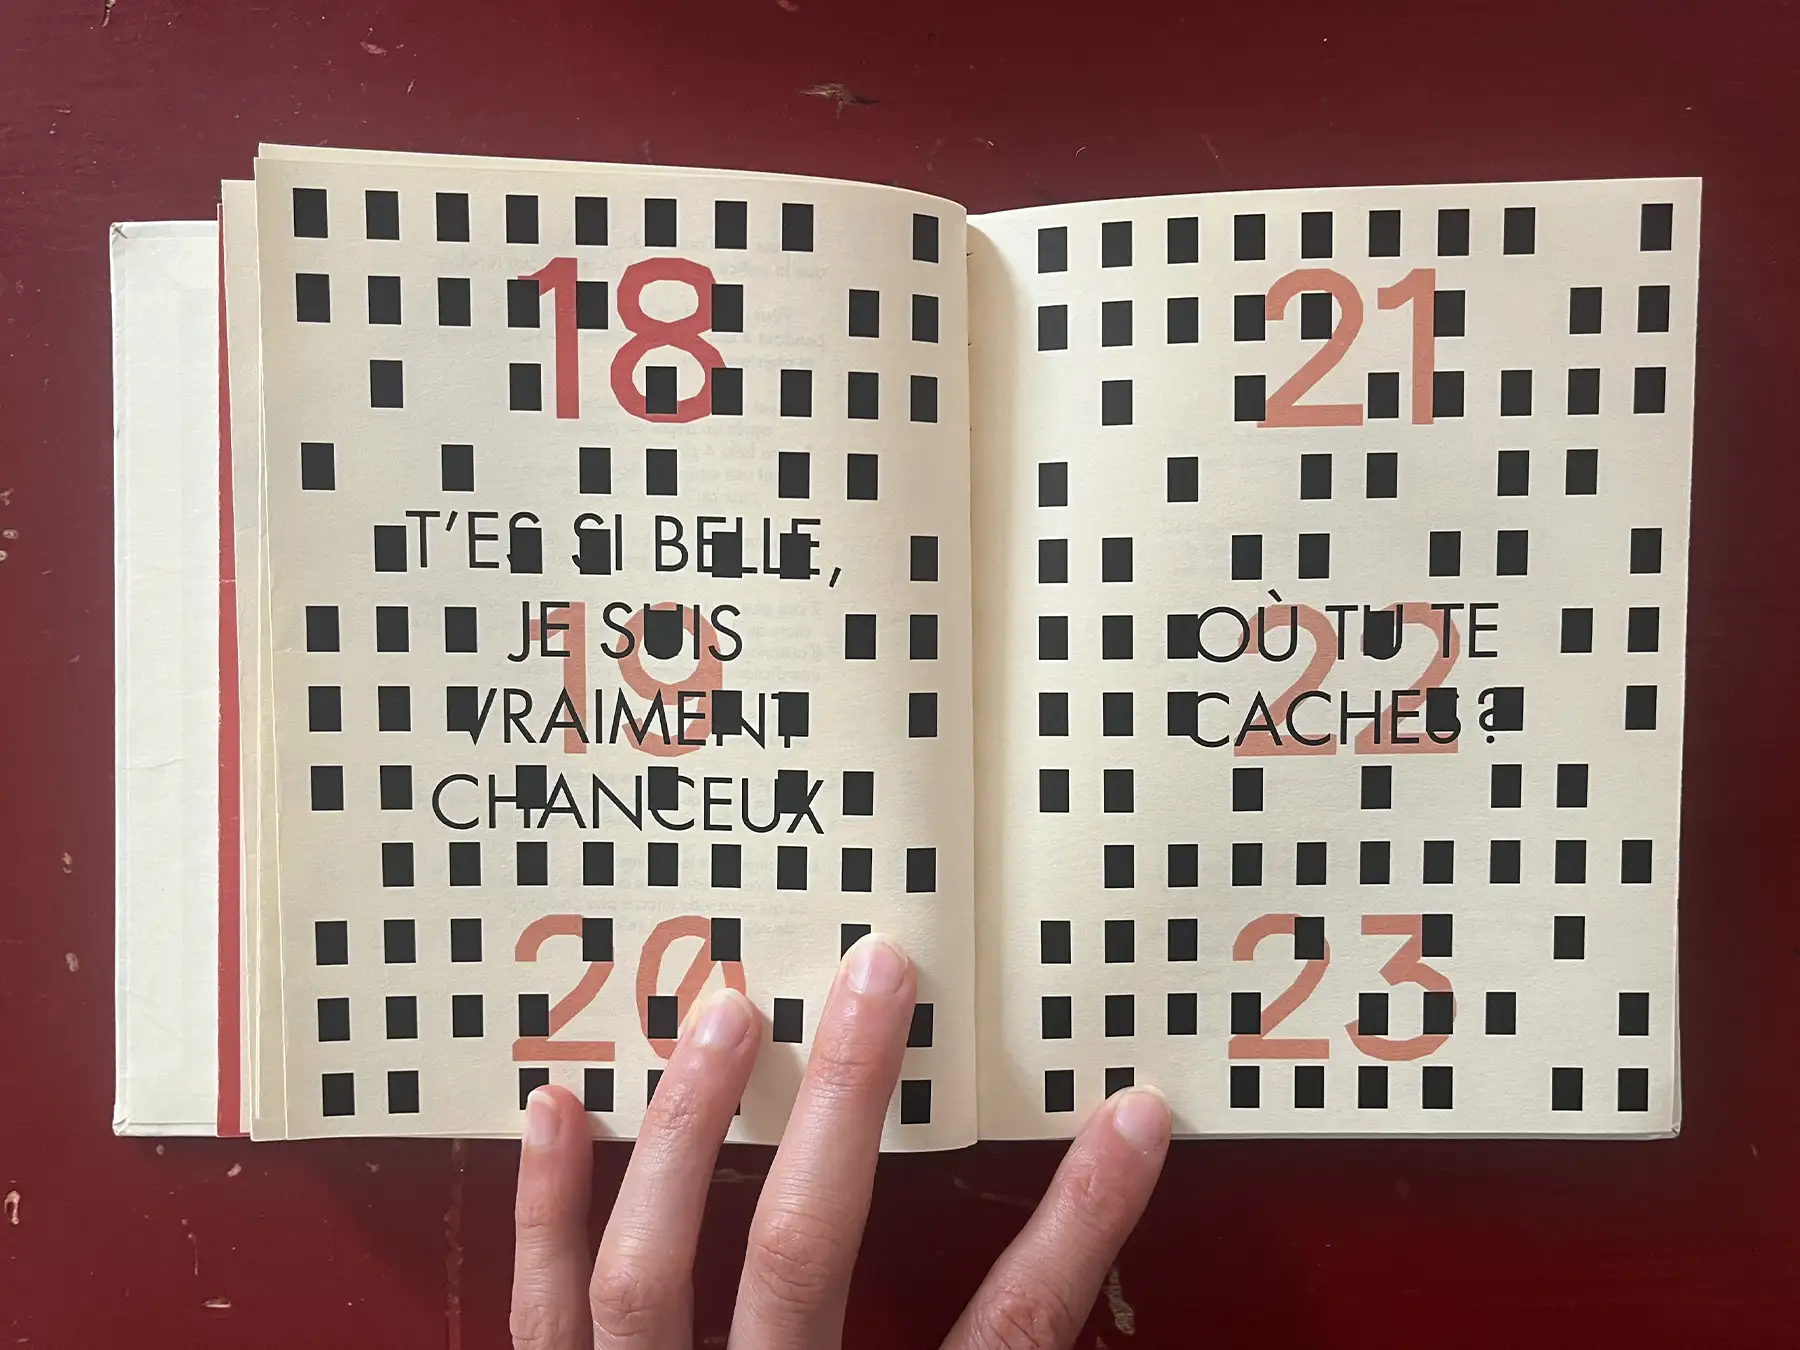 18
T'ES SI BELLE,
JE SUIS
19
VRAIMENT
CHANCEUX
20
21
OÙ TU TE
22
CACHES?
23